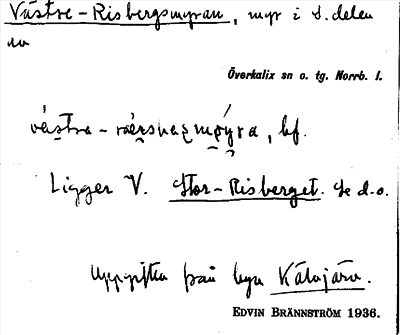 Västre-Risbergsmyran, myr i S.delen
av
Överkalix sn o. tg. Norrb. l.
bf.
Ligger V. Stor-Risberget. Se d.o.
Uppgifter från byn Kälvjärv.
EDVIN BRÄNNSTRÖM 1936.